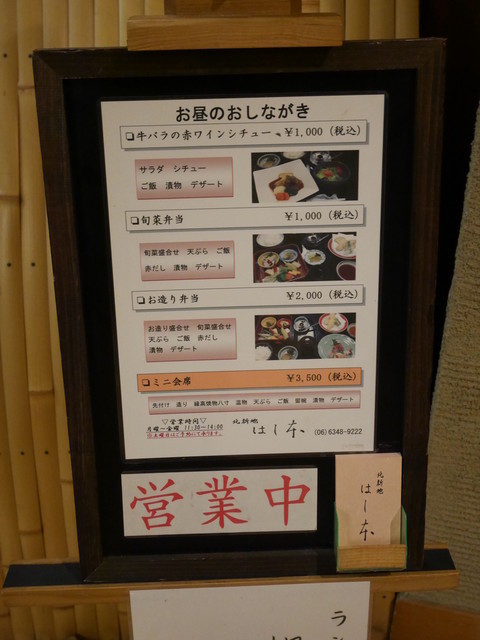 お昼のおしながき
❏牛バラの赤ワインシチュー ￥1,000（税込）
サラダ シチュー
ご飯 漬物 デザート
❏旬菜弁当 ￥1,000（税込）
旬菜盛合せ 天ぷら ご飯
赤だし 漬物 デザート
❏お造り弁当 ￥2,000（税込）
お造り盛合せ 旬菜盛合せ
天ぷら ご飯 赤だし
漬物 デザート
❏ミニ会席 ￥3,500（税込）
先付け 造り 焼物八寸 温物 天ぷら ご飯 留椀 漬物 デザート
▽営業時間▽
月曜～金曜 11:30～14:00
北新地
はし本
(06)6348-9222
営業中
北新地
はし本
ラン